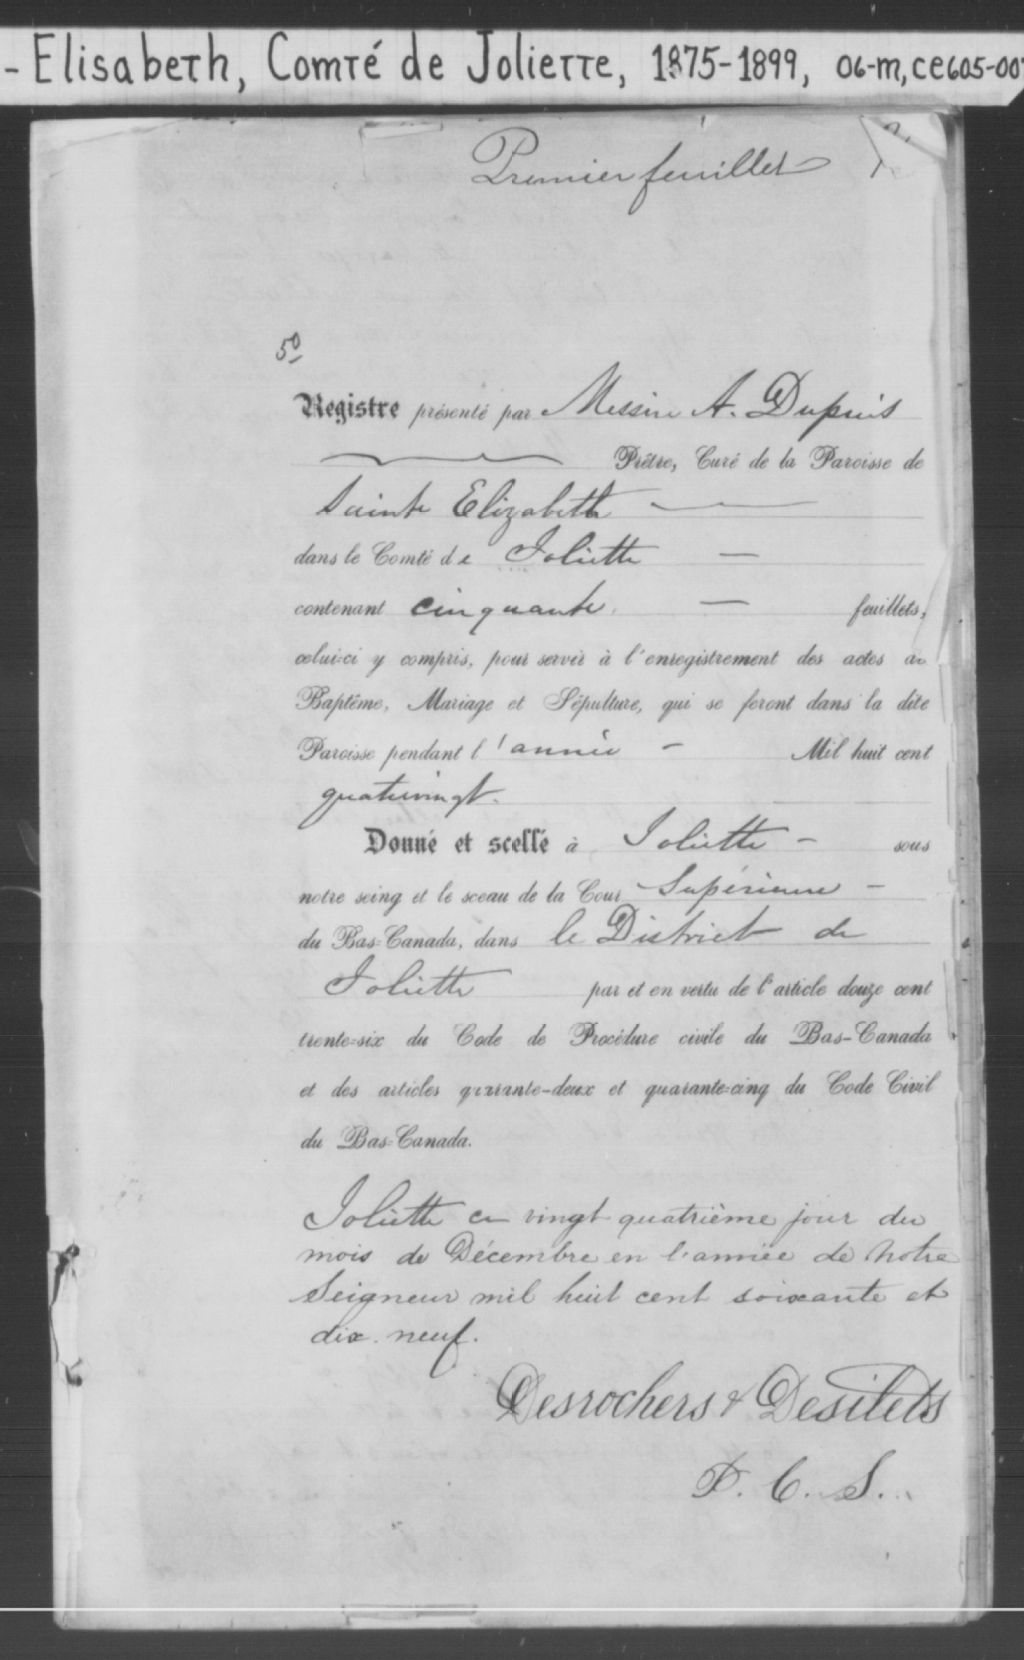 - Elisabeth, Comté de Joliette, 1875-1899, 06-m, CE605-00
Premier feuillet
50
Registre présenté par Messire A. Dupuis
Prêtre, Curé de la Paroisse de
Sainte Elizabeth
dans le Comté de Joliette —
contenant cinquante — feuillets,
celui-ci y compris, pour servir à l'enregistrement des actes de
Baptême, Mariage et Sépulture, qui se feront dans la dite
Paroisse pendant l'année - Mil huit cent
quatrevingt.
Donné et scellé à Joliette - sous
notre seing et le sceau de la Cour Supérieure -
du Bas-Canada, dans le District de
Joliette par et en vertu de l'article douze cent
trente-six du Code de Procédure civile du Bas-Canada
et des articles quarante-deux et quarante-cinq du Code Civil
du Bas-Canada.
Joliette ce vingt quatrième jour du
mois de Décembre en l'année de Notre
Seigneur mil huit cent soixante et
dix neuf.
Desrochers & Desilets
P. C. S.